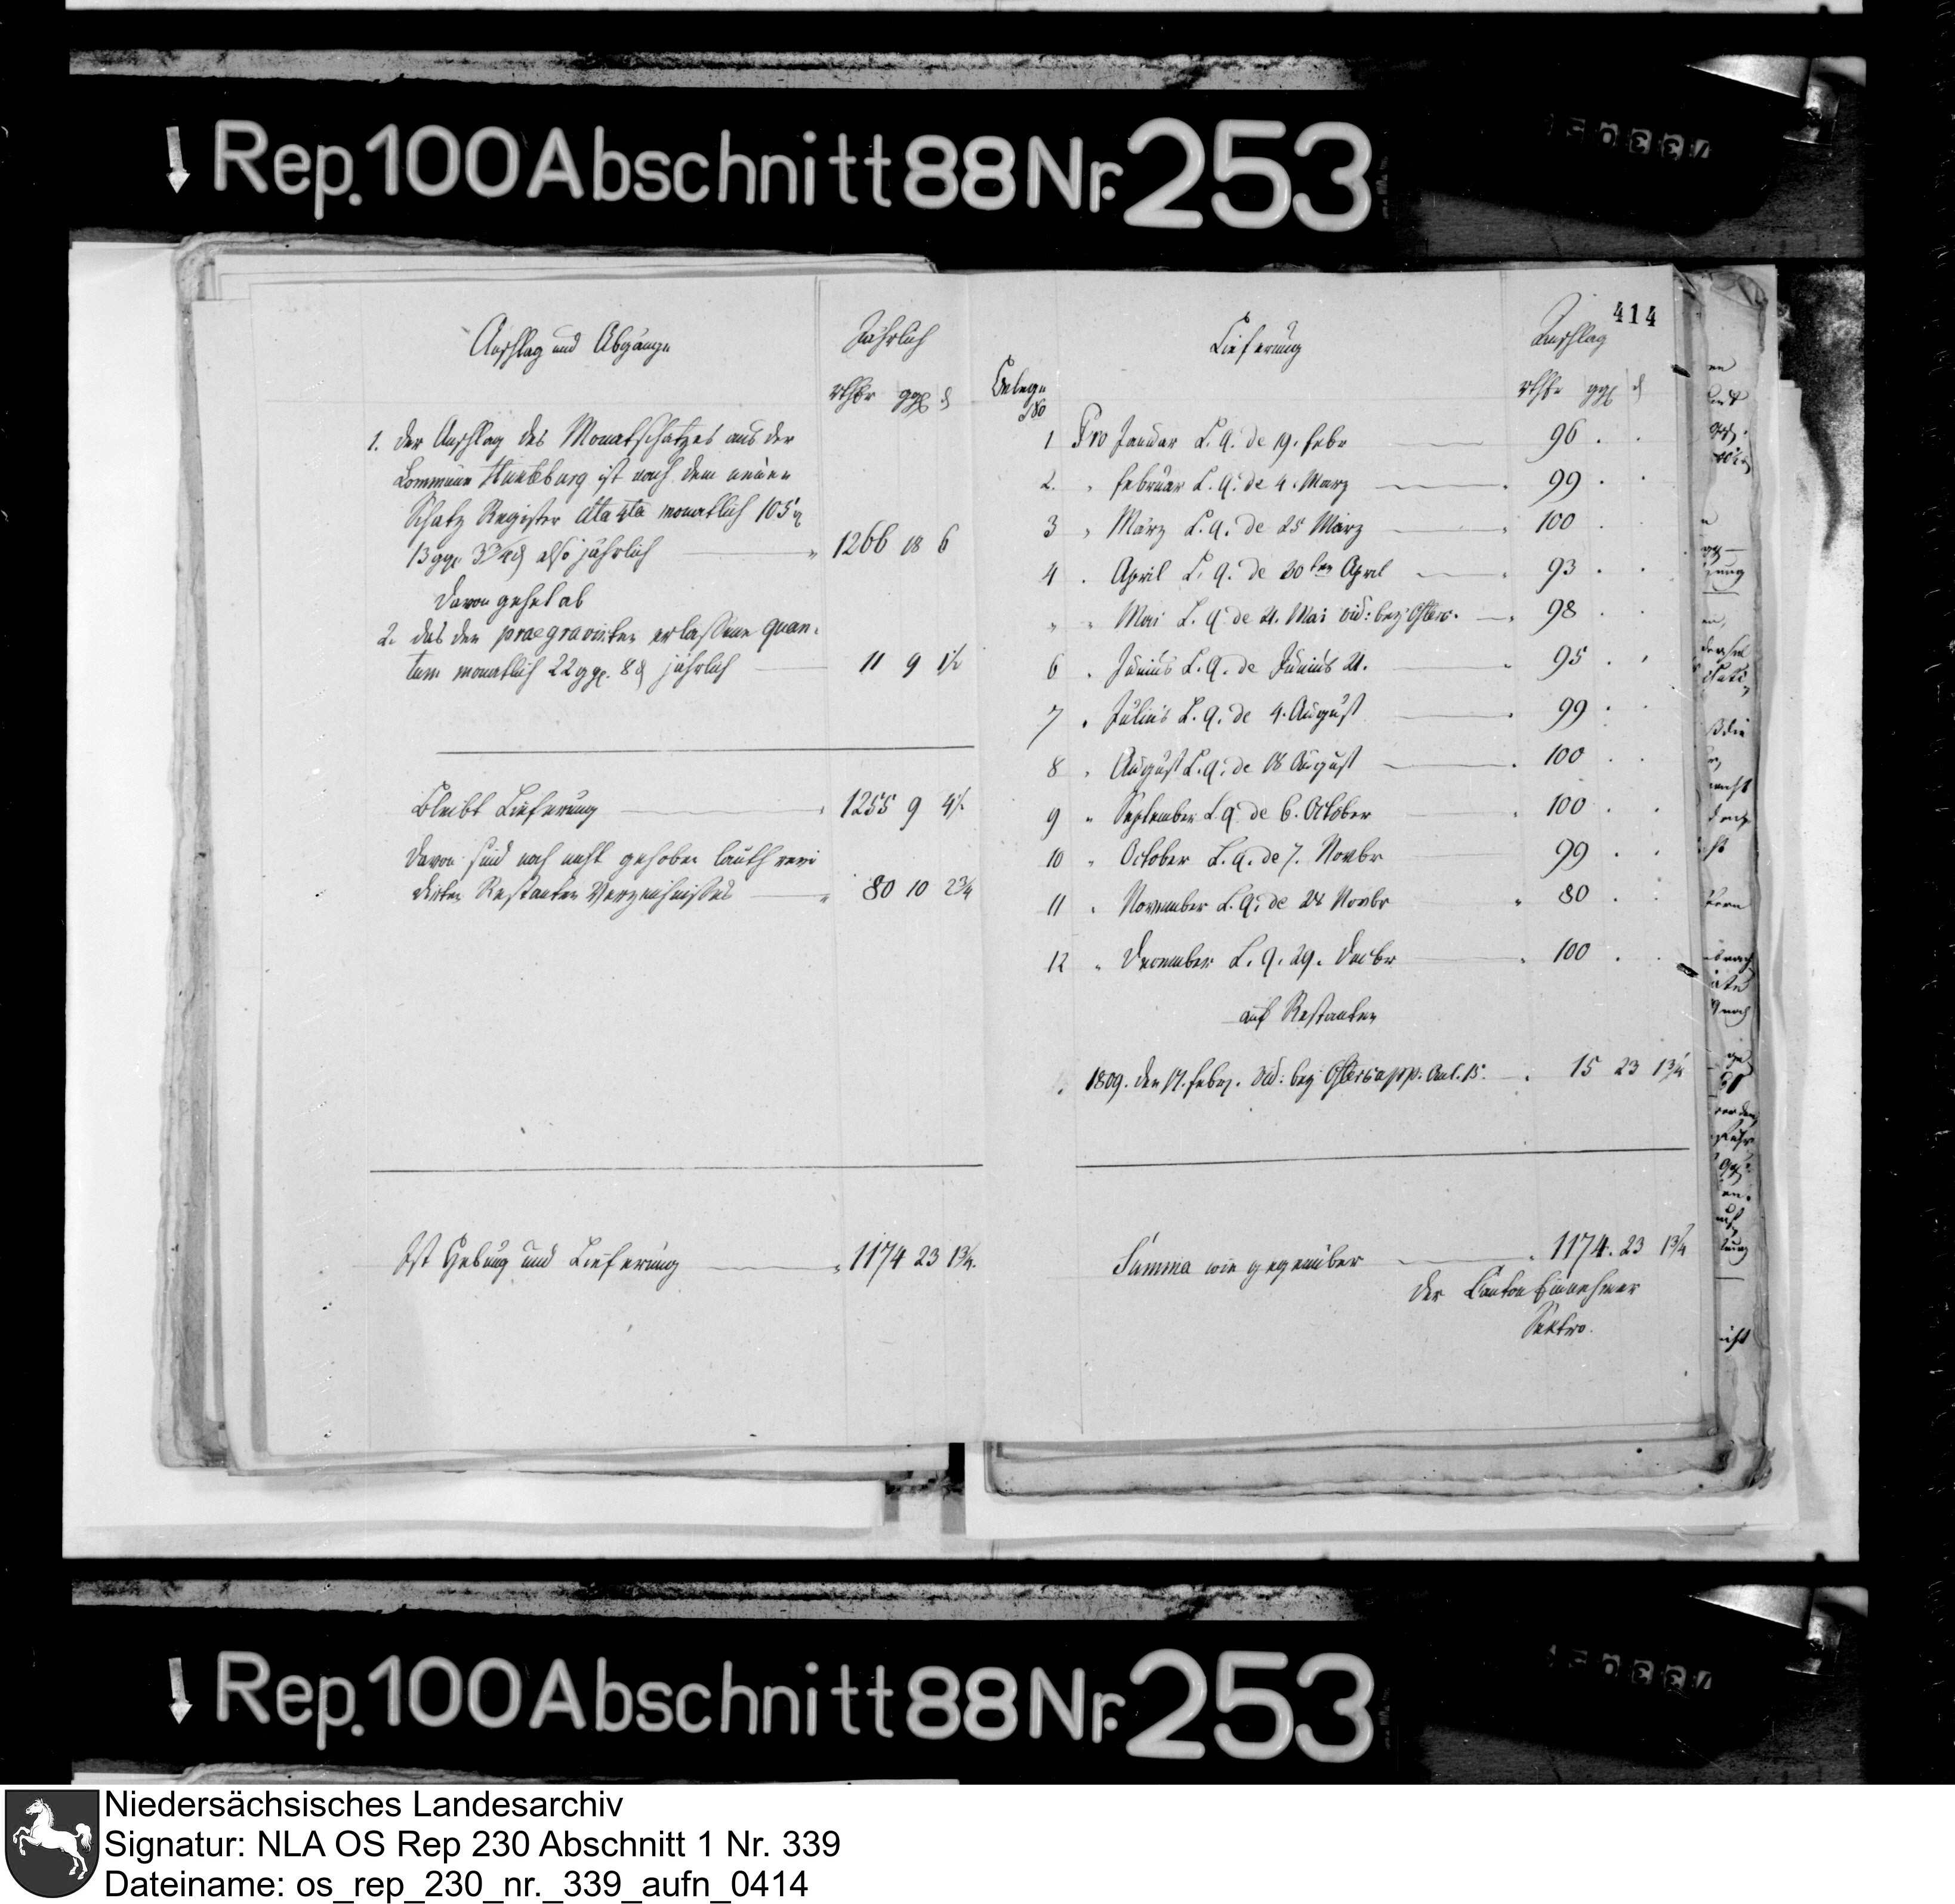 Rep. 100 Abschnitt 88 Nr. 253
414
Anschlag und Abgänge
Jährlich
rthlr ggl d
1. Der Anschlag des Monatschatzes aus der
Commune Hunteburg ist nach dem neuen
Schatz Register monatlich 105
13 ggl 3 3/4 d also jährlich 1266 18 6
Davon gehet ab
2. das den praegravirten erlassene quan-
tum monatlich 22 ggl. 8 d jährlich 11 9 1 1/2
Bleibt Lieferung 1255 9 4 1/2
Davon sind noch nicht gehoben lauth revi
dirten Restanten Verzeichnisses 80 10 2 3/4
Ist Hebung und Lieferung 1174 23 1 3/4
Lieferung
Anschlag
Belege
No
rthlr ggl d
1 Pro Januar L. Q. de 19. Febr 96 . .
2. " Februar L. Q. de 4. Merz 99 . .
3 " März L. Q. de 25 März 100 . .
4 " April L. Q. de 30ten April 93 . .
" " Mai L. Q. de 21. Mai vid: bey Osterc. 98 . .
6 " Junius L. Q. de Junius 21. 95 . .
7 " Julius L. Q. de 4. August 99 . .
8 " August L. Q. de 18 August 100 . .
9 " September L. Q. de 6. October 100 . .
10 " October L. Q. de 7. Novbr 99 . .
11 " November L. Q. de 28 Novbr 80 . .
12 " December L. Q. 29. Decbr 100 . .
auf Restanten
1809. den 17. Febr. vid: bey Ostercapp. Anl. 15. 15 23 1 3/4
Summa wie gegenüber 1174. 23 1 3/4
Der Canton Einnehmer
Rep. 100 Abschnitt 88 Nr. 253
Niedersächsisches Landesarchiv
Signatur: NLA OS Rep 230 Abschnitt 1 Nr. 339
Dateiname: os_rep_230_nr._339_aufn_0414